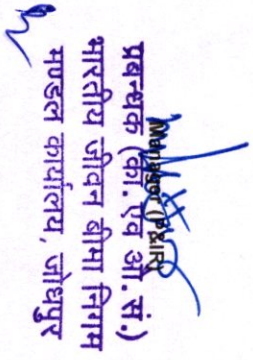 Manager (P&IR)
प्रबन्धक (का. एवं औ.सं.)
भारतीय जीवन बीमा निगम
मण्डल कार्यालय, जोधपुर